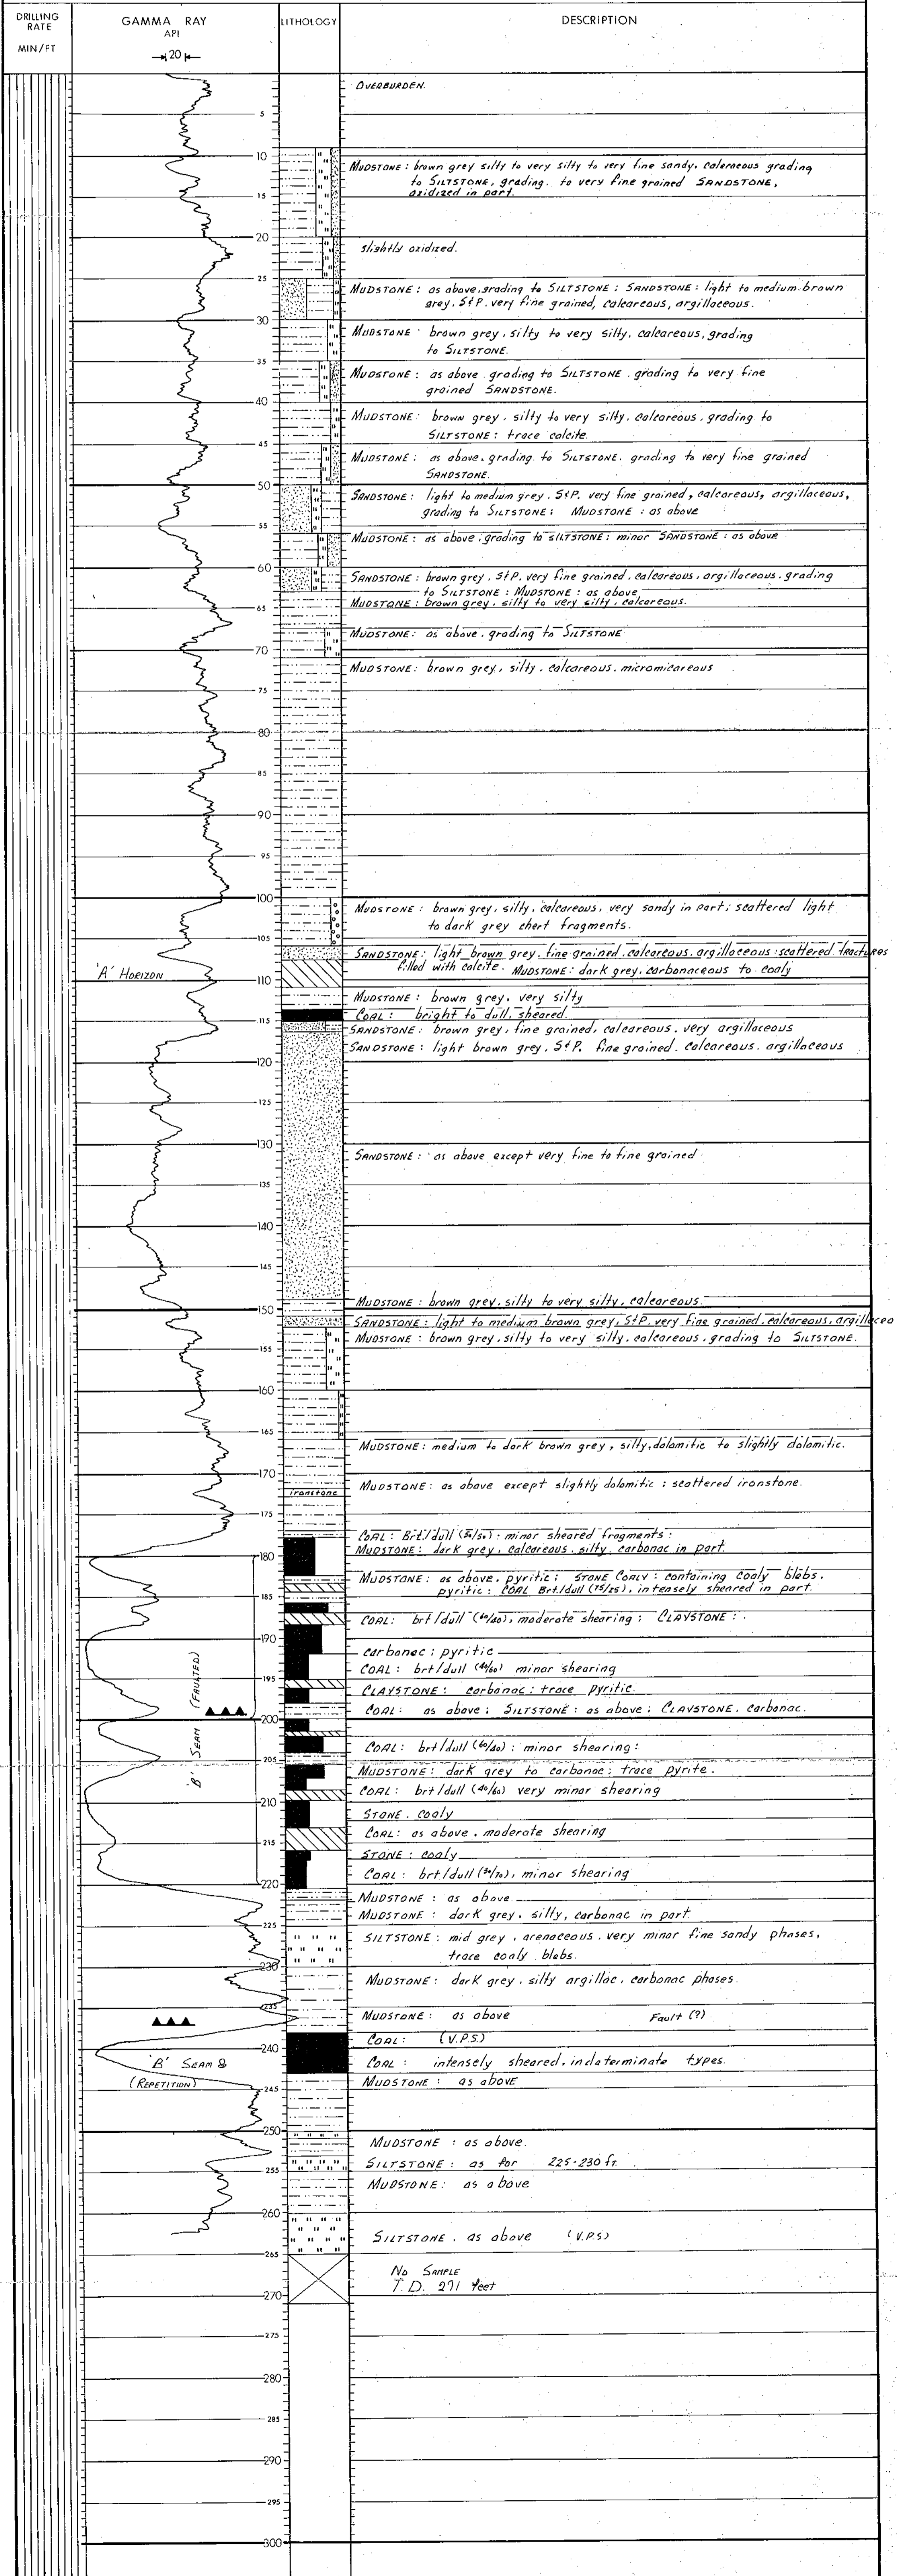 DRILLING RATE
MIN/FT
GAMMA RAY
API
20
LITHOLOGY
DESCRIPTION
OVERBURDEN.
5
10
MUDSTONE : brown grey silty to very silty to very fine sandy, calcareous grading
to SILTSTONE, grading. to very fine grained SANDSTONE,
oxidized in part.
15
20
slightly oxidized.
25
MUDSTONE : as above, grading to SILTSTONE : SANDSTONE : light to medium brown
grey, S&P. very fine grained, calcareous, argillaceous.
30
MUDSTONE : brown grey, silty to very silty, calcareous, grading
to SILTSTONE.
35
MUDSTONE : as above grading to SILTSTONE, grading to very fine
grained SANDSTONE.
40
MUDSTONE: brown grey, silty to very silty, calcareous, grading to
SILTSTONE: trace calcite.
45
MUDSTONE : as above, grading to SILTSTONE, grading to very fine grained
SANDSTONE.
50
SANDSTONE: light to medium grey, S&P. very fine grained, calcareous, argillaceous,
grading to SILTSTONE; MUDSTONE : as above
55
MUDSTONE : as above, grading to SILTSTONE; minor SANDSTONE : as above
60
SANDSTONE : brown grey, S&P. very fine grained, calcareous, argillaceous, grading
to SILTSTONE : MUDSTONE : as above
MUDSTONE : brown grey, silty to very silty, calcareous.
65
MUDSTONE: as above, grading to SILTSTONE
70
MUDSTONE: brown grey, silty, calcareous, micromicareous
75
80
85
90
95
100
MUDSTONE : brown grey, silty, calcareous, very sandy in part; scattered light
to dark grey chert fragments.
105
SANDSTONE: light brown grey, fine grained, calcareous, argillaceous : scattered fractures
filled with calcite. MUDSTONE: dark grey, carbonaceous to coaly
'A' HORIZON
110
MUDSTONE : brown grey, very silty
COAL: bright to dull, sheared.
115
SANDSTONE : brown grey, fine grained, calcareous, very argillaceous
SANDSTONE : light brown grey, S&P. fine grained, calcareous, argillaceous
120
125
130
SANDSTONE : as above except very fine to fine grained
135
140
145
MUDSTONE : brown grey, silty to very silty, calcareous.
150
SANDSTONE : light to medium brown grey, S&P. very fine grained, calcareous, argillaceo
MUDSTONE : brown grey, silty to very silty, calcareous, grading to SILTSTONE.
155
160
165
MUDSTONE : medium to dark brown grey, silty, dolomitic to slightly dolomitic.
170
MUDSTONE : as above except slightly dolomitic : scattered ironstone.
ironstone
175
COAL: Brt/dull (50/50) : minor sheared fragments :
MUDSTONE: dark grey, calcareous, silty, carbonac in part.
180
MUDSTONE : as above, pyritic ; STONE COALY : containing coaly blebs,
pyritic : COAL Brt/dull (75/25), intensely sheared in part.
185
COAL: brt/dull (60/40), moderate shearing ; CLAYSTONE : .
190
carbonac ; pyritic
COAL : brt/dull (40/60) minor shearing
195
CLAYSTONE : carbonac : trace pyritic.
COAL : as above ; SILTSTONE : as above ; CLAYSTONE, carbonac.
'B' SEAM (FAULTED)
200
COAL: brt/dull (60/40) : minor shearing :
205
MUDSTONE: dark grey to carbonac; trace pyrite.
COAL: brt/dull (40/60) very minor shearing
210
STONE. coaly
COAL: as above, moderate shearing
215
STONE : coaly
COAL: brt/dull (30/70), minor shearing
220
MUDSTONE : as above.
MUDSTONE : dark grey, silty, carbonac in part.
225
SILTSTONE : mid grey, arenaceous, very minor fine sandy phases,
trace coaly blebs.
230
MUDSTONE : dark grey, silty argillac, carbonac phases.
235
MUDSTONE : as above Fault (?)
COAL: (V.P.S)
240
COAL : intensely sheared, indeterminate types.
'B' SEAM &
(REPETITION)
MUDSTONE : as above
245
250
MUDSTONE : as above.
SILTSTONE : as for 225-230 ft.
255
MUDSTONE: as above
260
SILTSTONE. as above (V.P.S)
265
NO SAMPLE
T.D. 271 feet
270
275
280
285
290
295
300